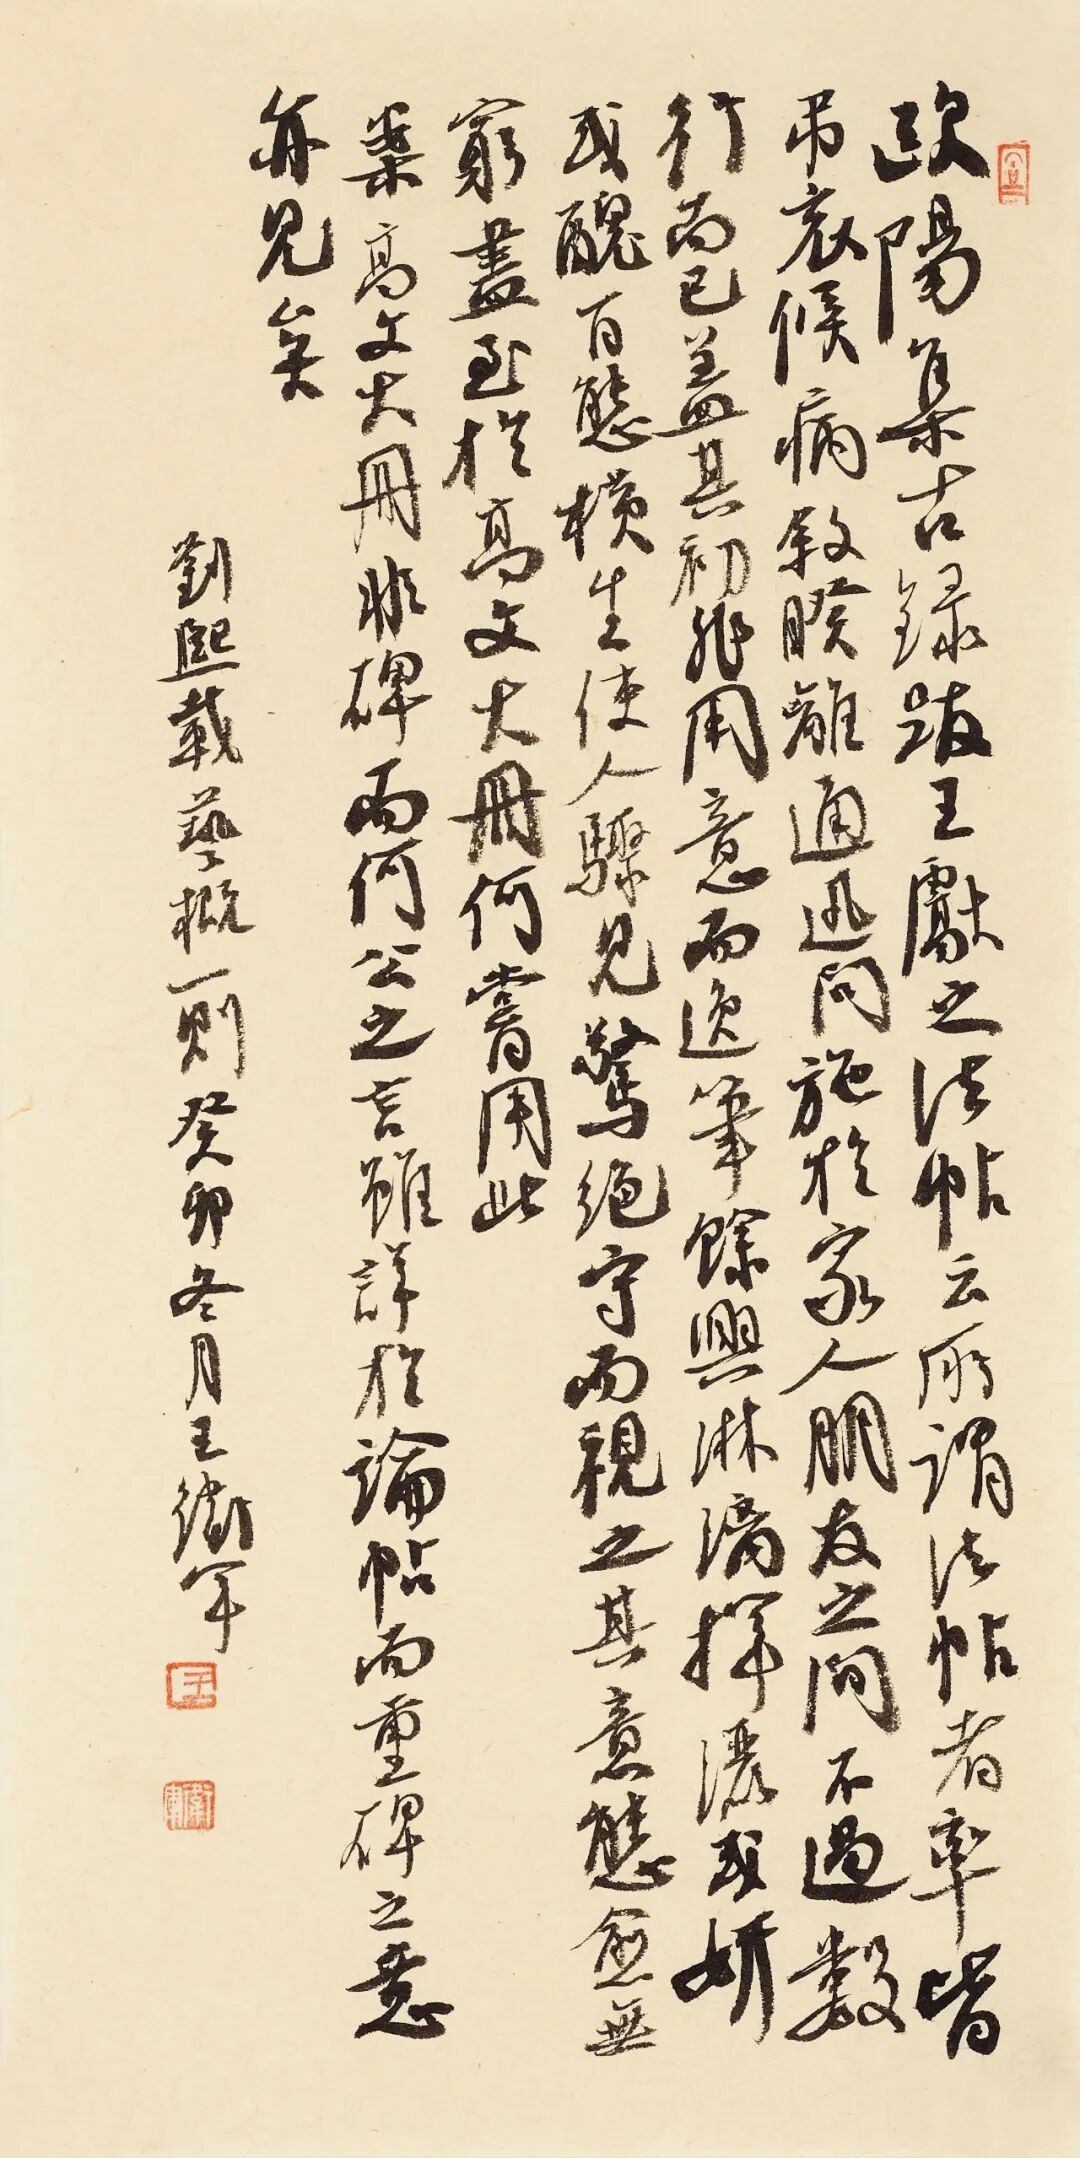 歐陽集古録跋王獻之法帖云所謂法帖者率皆
弔哀候病敘睽離通迅問施於家人朋友之間不過數
行而已蓋其初非用意而逸筆餘興淋漓揮灑或妍
或醜百態横生使人驟見驚絶守而視之其意態愈無
窮盡至於高文大冊何嘗用此
案高文大冊非碑而何公之言雖詳於論帖而重碑之意
亦見矣
劉熙載藝概一則癸卯冬月王衛軍